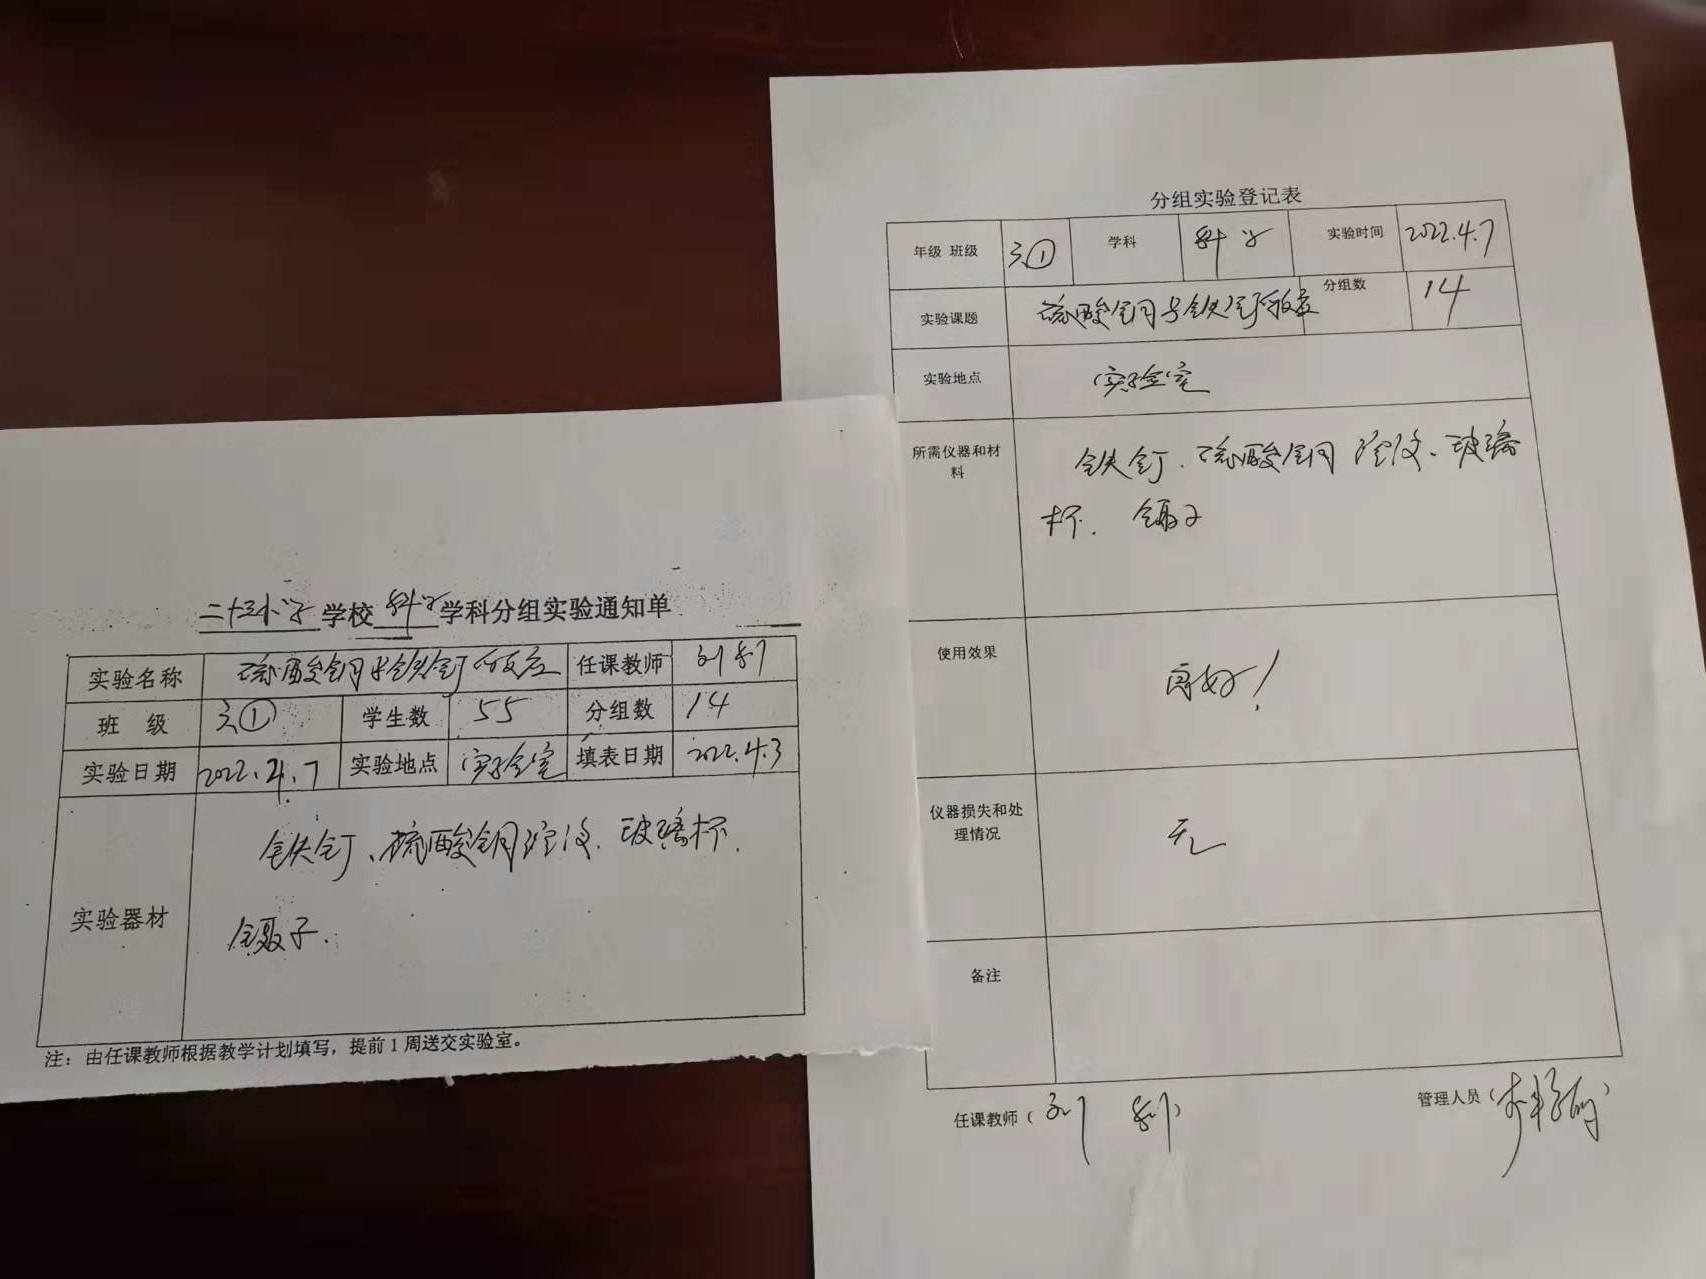 二十三小学 学校 科学 学科分组实验通知单
实验名称 硫酸铜与铁钉反应 任课教师 刘
班 级 六① 学生数 55 分组数 14
实验日期 2022.4.7 实验地点 实验室 填表日期 2022.4.3
实验器材 铁钉、硫酸铜溶液、玻璃杯、
镊子.
注：由任课教师根据教学计划填写，提前1周送交实验室。
分组实验登记表
年级 班级 六① 学科 科学 实验时间 2022.4.7
实验课题 硫酸铜与铁钉反应 分组数 14
实验地点 实验室
所需仪器和材料 铁钉、硫酸铜溶液、玻璃
杯、镊子
使用效果 良好！
仪器损失和处理情况 无
备注
任课教师（刘 ） 管理人员（李 ）